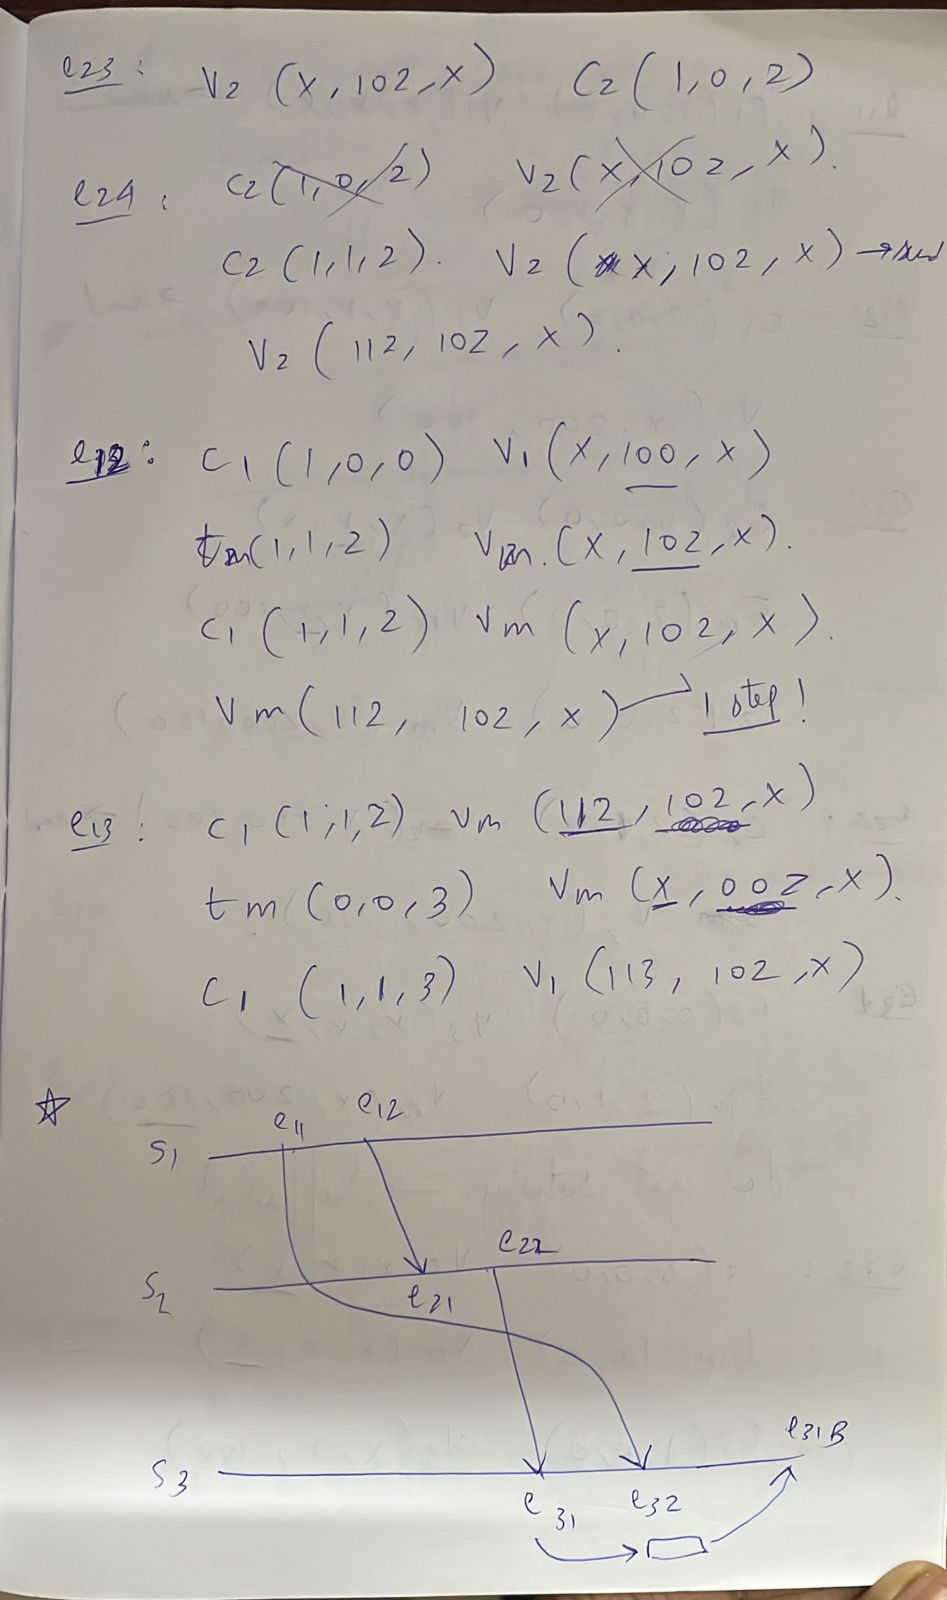 e23 : V2 (X, 102, X) C2 (1, 0, 2)
e24 : C2 (1, 0, 2) V2 (X, 102, X).
C2 (1, 1, 2). V2 (X, 102, X) →
V2 (112, 102, X).
e12 : C1 (1, 0, 0) V1 (X, 100, X)
tm (1, 1, 2) Vm. (X, 102, X).
C1 (1, 1, 2) Vm (X, 102, X).
Vm (112, 102, X) → 1 step !
e13 : C1 (1, 1, 2) Vm (112, 102, X)
tm (0, 0, 3) Vm (X, 002, X).
C1 (1, 1, 3) V1 (113, 102, X)
☆ e11 e12
S1
e22
S2
e21
e31B
S3
e31 e32